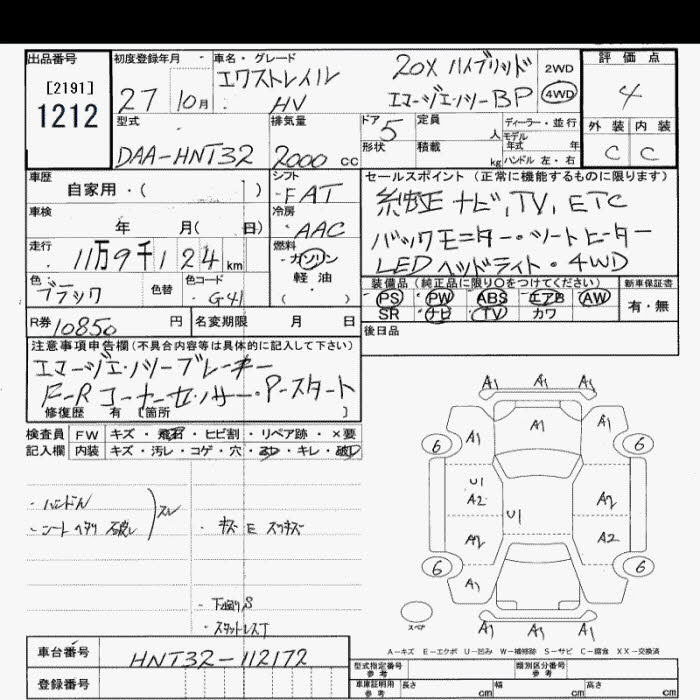 出品番号 初度登録年月 車名・グレード 評価点
[2191] 1212
27 10月
エクストレイル 20X ハイブリッド 2WD
HV エマージェンシーBP 4WD
4
型式 排気量 ドア 5 定員 人 ディーラー・並行
モデル年式 年
外装 内装
DAA-HNT32 2000 cc 形状 積載 kg ハンドル 左・右
C C
車歴 シフト セールスポイント(正常に機能するものに限ります)
自家用・( ) FAT
純正ナビ, TV, ETC
車検 年 月( 日) 冷房 AAC
バックモニター・シートヒーター
走行 11万9千124 km 燃料 ガソリン
LEDヘッドライト・4WD
色 ブラック 色替 色コード G41 軽油 ( )
装備品(純正品に限り○をつけてください) 新車保証書
PS PW ABS エアB AW
SR ナビ TV カワ 有・無
R券 10850 円 名変期限 月 日 後日品
注意事項申告欄(不具合内容等は具体的に記入して下さい)
エマージェンシーブレーキ
F-Rコーナーセンサー・P-スタート
修復歴 有 [箇所 ]
検査員 FW キズ・飛石・ヒビ割・リペア跡・×要
記入欄 内装 キズ・汚レ・コゲ・穴・スレ・キレ・破レ
・ハンドル スレ
・シート ヘタリ 破レ ・キズ E スリキズ
・下廻りS
・スタットレスT
A1 A1 A1
A1 A1 A1
6 6
U1 A2 U1 A2
A2 A2
6 6
A1
A1 A1 A1
スペア
A-キズ E-エクボ U-凹み W-補修跡 S-サビ C-腐食 XX-交換済
車台番号 HNT32-112172
型式指定番号 参考 類別区分番号 参考
登録番号
車庫証明用 参考 長さ cm 幅 cm 高さ cm